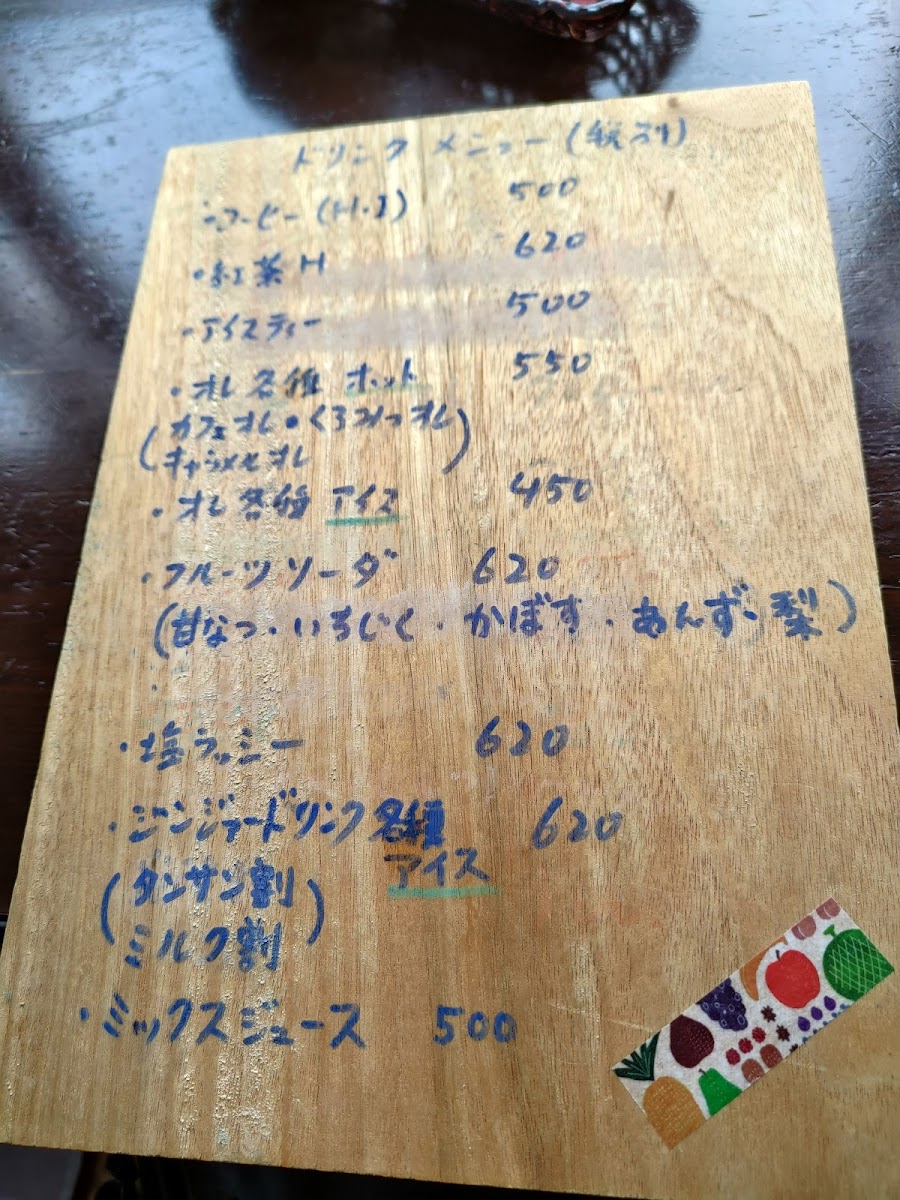 ドリンク メニュー (税別)
・コーヒー (H・I) 500
・紅茶 H 620
・アイスティー 500
・オレ各種 ホット 550
(カフェオレ・くろみつオレ
キャラメルオレ)
・オレ各種 アイス 450
・フルーツソーダ 620
(甘なつ・いちじく・かぼす・あんず・梨)
・塩ラッシー 620
・ジンジャードリンク各種 620
アイス
(タンサン割
ミルク割)
・ミックスジュース 500